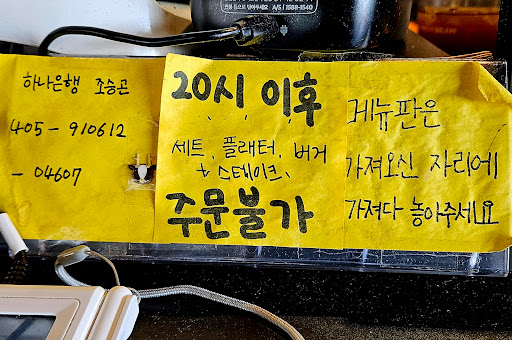 하나은행 조승곤
405-910612
-04607
20시 이후
세트, 플래터, 버거
스테이크,
주문불가
메뉴판은
가져오신 자리에
가져다 놓아주세요
A/S / 1588-1540